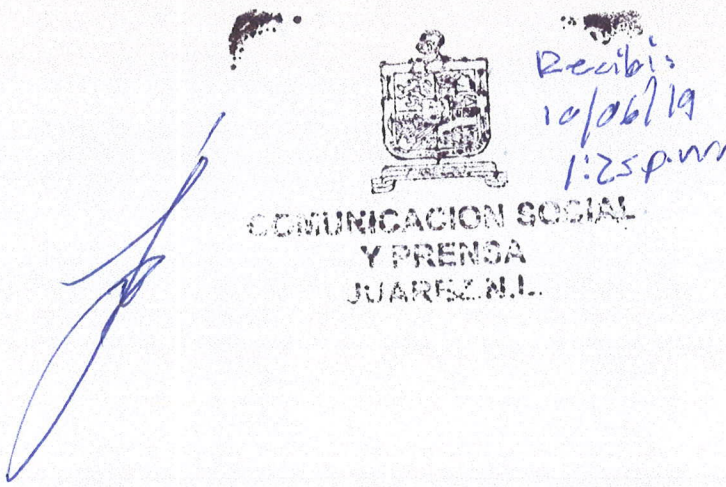 Recibi:
10/06/19
1:25 p.m
COMUNICACION SOCIAL
Y PRENSA
JUAREZ N.L.